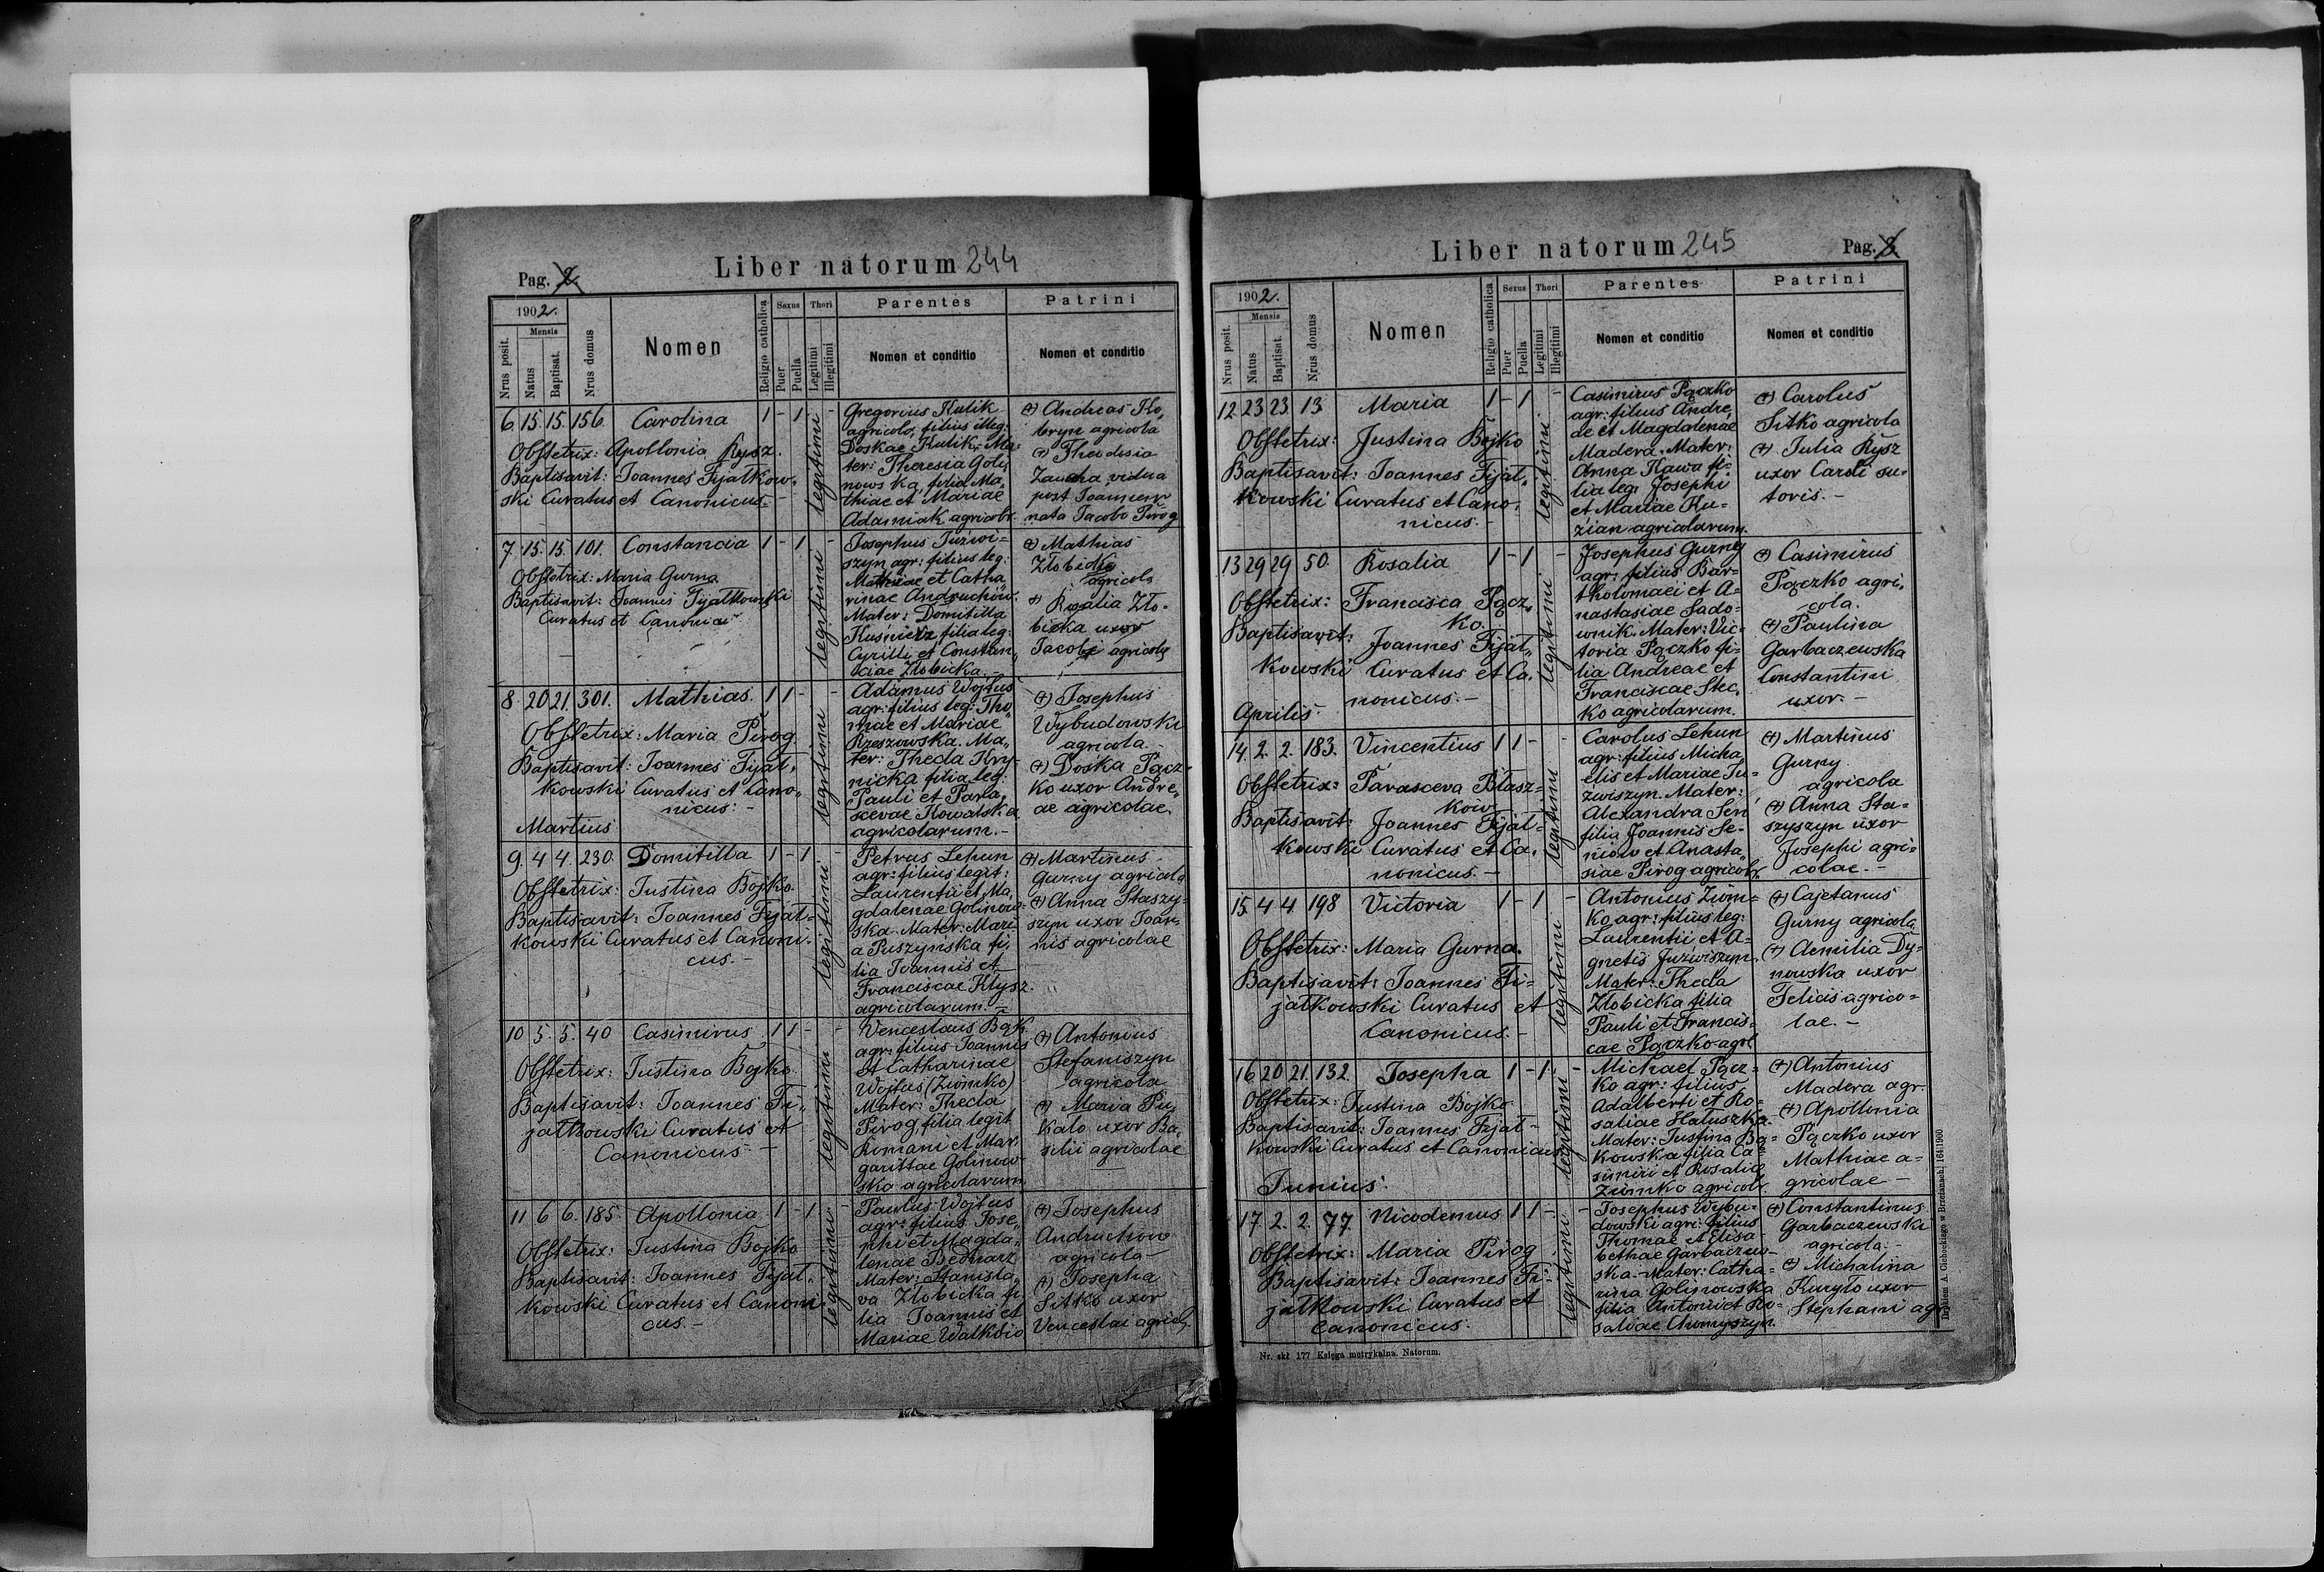 Pag. 2.
Liber natorum 244
1902.
Nrus posit.
Mensis
Natus
Baptisat.
Nrus domus
Nomen
Religio catholica
Sexus
Puer
Puella
Thori
Legitimi
Illegitimi
Parentes
Nomen et conditio
Patrini
Nomen et conditio
6. 15. 15. 156. Carolina 1 - 1 -
Obstetrix: Apollonia Kysz.
Baptisavit: Joannes Fijałkow-
ski Curatus et Canonicus.-
legitimi
Gregorius Kulik
agricola, filius illeg:
Doskae Kulik. Ma-
ter: Theresia Goli-
nowska, filia Ma-
thiae et Mariae
Adamiak agricolr.
(+) Andreas Ko-
teryn agricola
(+) Theodosia
vidua
post Joannem
nata Jacobo Pirog
7. 15. 15. 101. Constancia 1 - 1 -
Obstetrix: Maria Gurna
Baptisavit: Joannes Fijałkowski
Curatus et Canonicus
legitimi
Josephus Juźwi=
szyn agr: filius leg:
Mathiae et Catha-
rinae Andruchów.
Mater: Domitilla
Kuśnierz filia leg:
Cyrilli et Constan-
ciae Złobicka.-
(+) Mathias
Złobicki
agricola
(+) Rosalia Zło-
bicka uxor
Jacobi agricolae
8. 20. 21. 301. Mathias. 1 1 - -
Obstetrix: Maria Pirog
Baptisavit: Joannes Fijał-
kowski Curatus et Cano-
nicus.-
legitimi
Adamus Wojtus
agr: filius leg: Tho-
mae et Mariae
Rzeszowska. Ma-
ter: Thecla Kry-
nicka filia leg:
Pauli et Para-
scevae Kowalska
agricolarum.-
(+) Josephus
Wybudowski
agricola.-
(+) Doska Pącz-
ko uxor Andre-
ae agricolae.
Martius
9. 4. 4. 230. Domitilla 1 - 1 -
Obstetrix: Justina Bojko
Baptisavit: Joannes Fijał=
kowski Curatus et Canoni-
cus.-
legitimi
Petrus Lehun
agr: filius legit:
Laurentii et Ma-
gdalenae Golinow-
ska. Mater: Mari-
a Puszynska fi-
lia Joannis et
Franciscae Kłysz.
agricolarum.-
(+) Martinus
Gurny agricola
(+) Anna Staszy-
szyn uxor Joan-
nis agricolae
10. 5. 5. 40 Casimirus 1 1 - -
Obstetrix: Justina Bojko
Baptisavit: Joannes Fi-
jałkowski Curatus et
Canonicus.-
legitimi
Venceslaus Bąk
agr: filius Joannis
et Catharinae
Wojtus (Ziomko)
Mater: Thecla
Pirog, filia legit
Romani et Mar-
garittae Golinow-
ska agricolarum
(+) Antonius
Stefaniszyn
agricola
(+) Maria Pu-
kało uxor Ba-
silii agricolae
11 6 6. 185. Apollonia 1 - 1 -
Obstetrix: Justina Bojko
Baptisavit: Joannes Fijał-
kowski Curatus et Canoni-
cus.-
legitimi
Paulus Wojtus
agr: filius Jose-
phi et Magda-
lenae Bednarz
Mater: Stanisla-
va Złobicka fi-
lia Joannis et
Mariae
(+) Josephus
Andruchow
agricola-
(+) Josepha
Sitko uxor
Venceslai agricol.
Liber natorum 245
Pag. 3.
1902.
Nrus posit.
Mensis
Natus
Baptisat.
Nrus domus
Nomen
Religio catholica
Sexus
Puer
Puella
Thori
Legitimi
Illegitimi
Parentes
Nomen et conditio
Patrini
Nomen et conditio
12. 23. 23. 13. Maria 1 - 1 -
Obstetrix: Justina Bojko
Baptisavit: Joannes Fijał-
kowski Curatus et Cano-
nicus.-
legitimi
Casimirus Pączko
agr: filius Andre-
ae et Magdalenae
Madera. Mater:
Anna Kawa fi-
lia leg: Josephi
et Mariae Ku=
zian agricolarum.
(+) Carolus
Sitko agricola
(+) Julia Kysz
uxor Caroli su-
toris.-
13 29 29 50. Rosalia 1 - 1 -
Obstetrix: Francisca Pącz-
ko.
Baptisavit: Joannes Fijał-
kowski Curatus et Ca-
nonicus.-
legitimi
Josephus Gurny
agr: filius Bar=
tholomaei et A-
nastasiae Sado-
wnik. Mater: Vic-
toria Pączko fi-
lia Andreae et
Franciscae Stec-
ko agricolarum.
(+) Casimirus
Pączko agri-
cola.
(+) Paulina
Garbaczewska
Constantini
uxor.-
Aprilis.
14. 2. 2. 183. Vincentius 1 1 - -
Obstetrix: Parasceva Błasz=
ków
Baptisavit: Joannes Fijał=
kowski Curatus et Ca-
nonicus.-
legitimi
Carolus Lehun
agr: filius Micha-
elis et Mariae Ju=
źwiszyn. Mater:
Alexandra Seń
filia Joannis Se-
niów et Anasta-
siae Pirog agricolr.
(+) Martinus
Gurny
agricola
(+) Anna Sta=
szyszyn uxor
Josephi agri=
colae.-
15. 4 4. 198 Victoria 1 - 1 -
Obstetrix: Maria Gurna.
Baptisavit: Joannes Fi-
jałkowski Curatus et
Canonicus.-
legitimi
Antonius Ziom=
ko agr: filius leg:
Laurentii et A-
gnetis Juźwiszyn.
Mater: Thecla
Złobicka filia
Pauli et Francis-
cae Pączko agrl.
(+) Cajetanus
Gurny agricola
(+) Aemilia Dy=
nowska uxor
Felicis agrico=
lae.-
16. 20 21. 132. Josepha 1 - 1 -
Obstetrix: Justina Bojko
Baptisavit: Joannes Fijał-
kowski Curatus et Canonicus.
legitimi
Michael Pącz=
ko agr: filius
Adalberti et Ro-
saliae Hałuszka.
Mater: Justina Bą=
kowska filia Ca-
simiri et Rosaliae
Ziomko agricolr.
(+) Antonius
Madera agr.
(+) Apollonia
Pączko uxor
Mathiae a=
gricolae-
Junius.
17. 2. 2. 77. Nicodemus 1 1 - -
Obstetrix: Maria Pirog
Baptisavit: Joannes Fi-
jałkowski Curatus et
Canonicus.
legitimi
Josephus Wybu-
dowski agr: filius
Thomae et Elisa-
bethae Garbaczew-
ska. Mater: Catha=
rina Golinowska
filia Antonii et Ro-
saliae Chomyszyn.
(+) Constantinus
Garbaczewski
agricola.-
(+) Michalina
Kuryło uxor
Stephani agr.
Nr. skł 177 Księga metrykalna. Natorum.
Drukiem A. Cichockiego w Brzeżanach. 164/1900